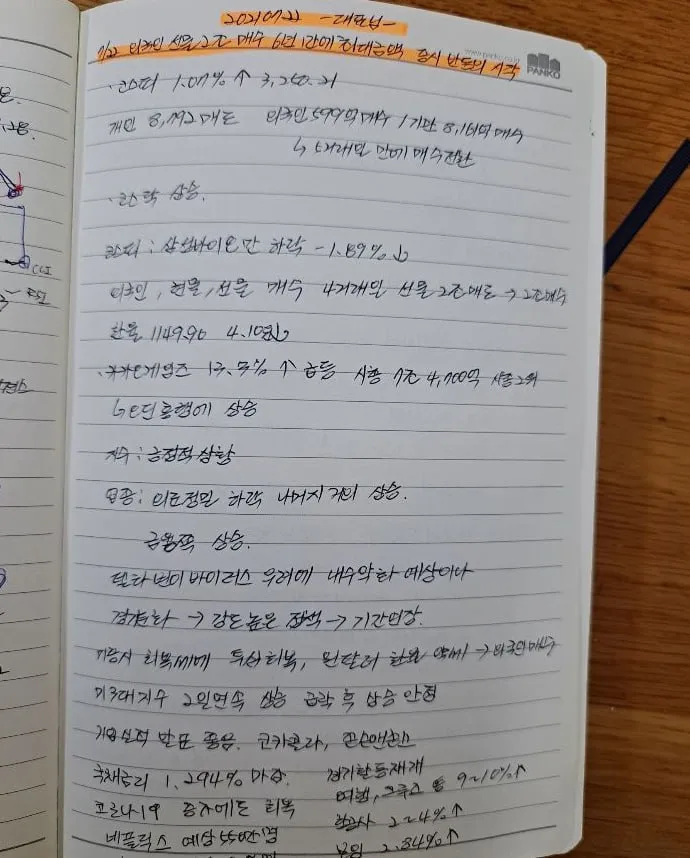 2021.07.22 -대표님-
7/22 외국인 선물 2조 매수 6년간에 최대금액 증시 반등의 시작
www.panko.co.kr
PANKO
·코스피 1.07%↑ 3,250.21
개인 8,192매도 외국인 599억매수 / 기관 8,161억 매수
↳ 5거래일 만에 매수전환
·코스닥 상승.
코스피: 삼성바이오만 하락 -1.89%↓
외국인, 현물, 선물 매수 4거래일 선물 2조매도 → 2조매수
환율 1149.90 4.10원↓
·카카오게임즈 13.5%↑ 급등 시총 7조 4,700억 시총2위
↳ 오딘 흥행에 상승
지수: 긍정적 상황
업종: 의료정밀 하락 나머지 거의 상승.
금융쪽 상승.
델타변이 바이러스 우려에 내수약화 예상이나
→ 강도높은 정책 → 기간연장.
미증시 회복세에 투심회복, 원달러 환율 약세 → 외국인매수
미3대지수 2일연속 상승 급락 후 상승 안정
기업실적 발표 좋음. 코카콜라, 존슨앤존슨
국채금리 1.294% 마감. 경기활동재개
여행, 크루즈 등 9~10%↑
코로나19 증가에도 회복 항공사 2~4%↑
넷플릭스 예상 550만명 보잉 2.84%↑
CCI